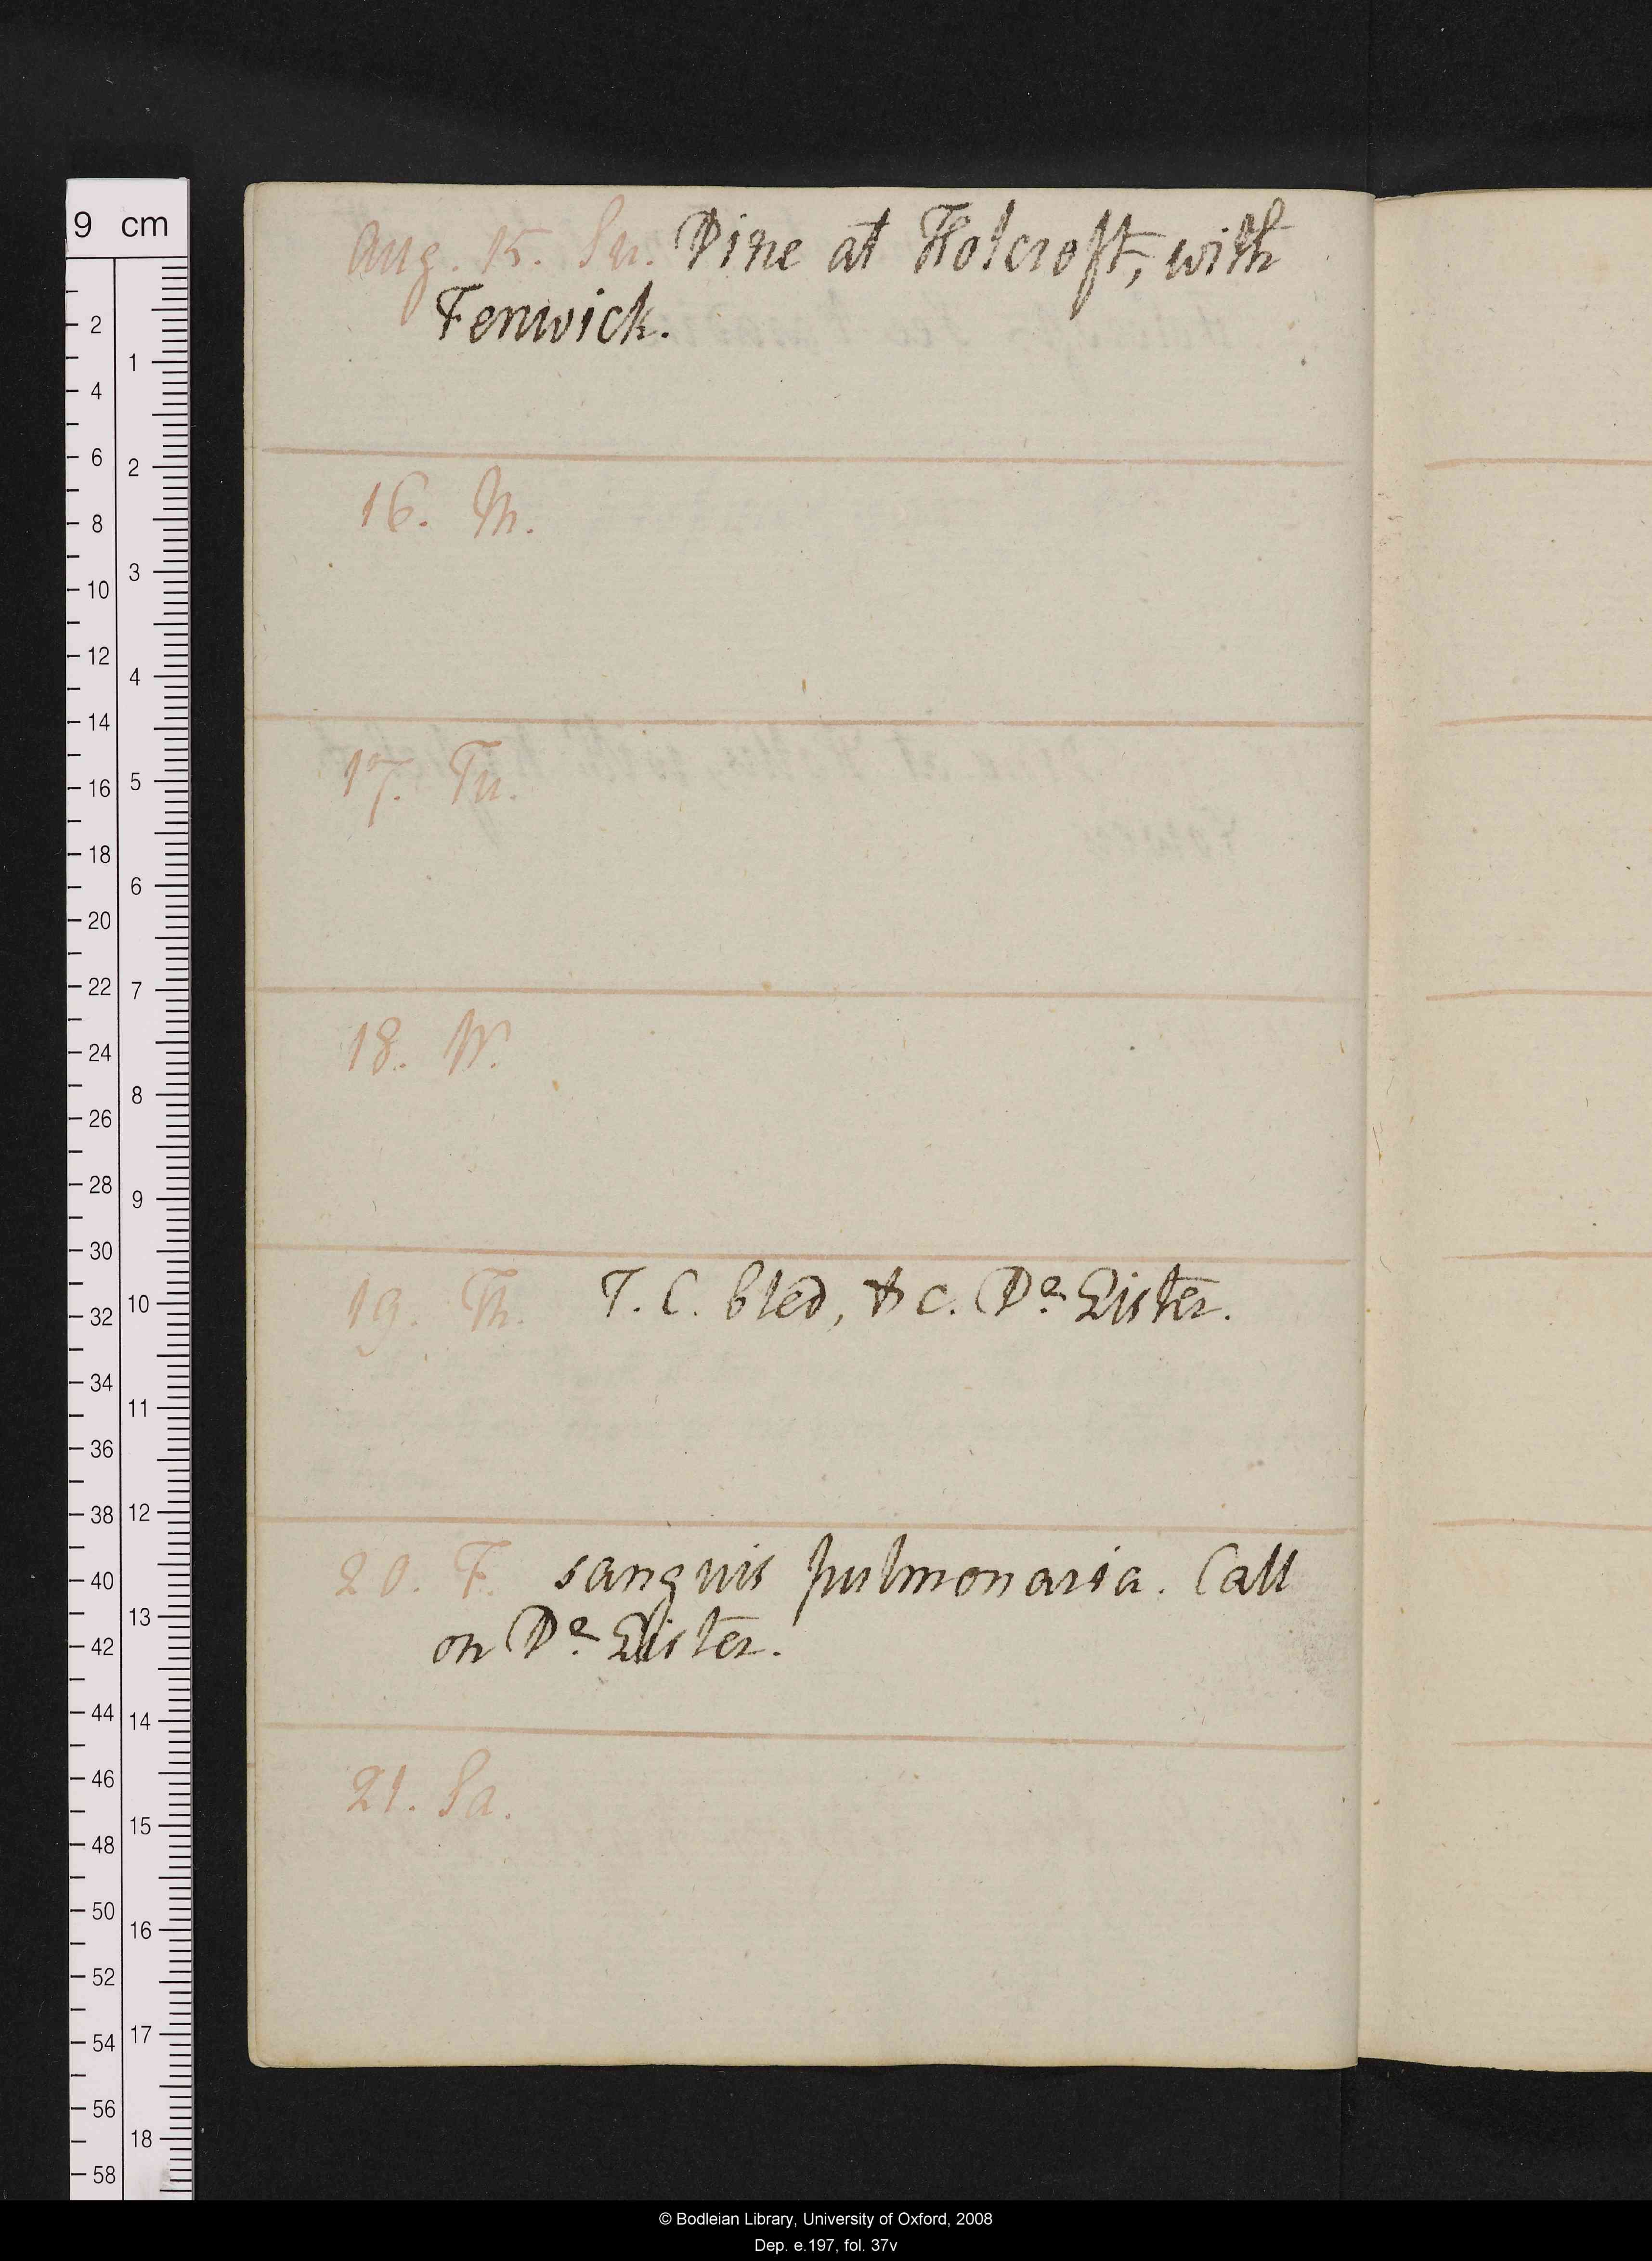 Aug. 15. Su. Dine at Holcroft, with
Fenwick.
16. M.
17. Tu.
18. W.
19. Th. T. C. bled, &c. Dr. Lister.
20. F. sanguis pulmonaria. Call
on Dr. Lister.
21. Sa.
9 cm
2
4
6
8
10
12
14
16
18
20
22
24
26
28
30
32
34
36
38
40
42
44
46
48
50
52
54
56
58
1
2
3
4
5
6
7
8
9
10
11
12
13
14
15
16
17
18
© Bodleian Library, University of Oxford, 2008
Dep. e.197, fol. 37v